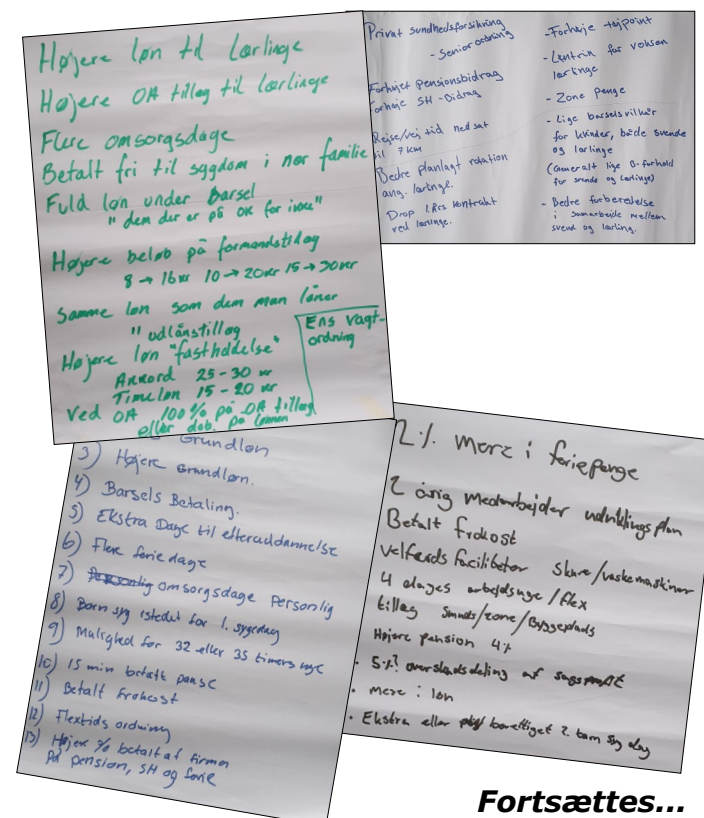 Højere løn til Lærlinge
Højere OA tillæg til lærlinge
Flere omsorgsdage
Betalt fri til sygdom i nær familie
Fuld løn under Barsel
" dem der er på OK for ikke"
Højere beløb på formandstillæg
8 → 16kr 10 → 20kr 15 → 30kr
Samme løn som dem man låner
" udlånstillæg
Højere løn "fastholdelse"
Akkord 25-30 kr
Timeløn 15-20 kr
Ved OA 100% på OA tillæg
eller dob. på lønnen
Ens vagt-
ordning
Privat sundhedsforsikring
- Seniorordning
Forhøjet pensionsbidrag
Forhøje SH-Bidrag
Rejse/vej tid nedsat
til 7 km
Bedre planlagt rotation
ang. lærlinge.
Drop kontrakt
ved lærlinge.
- Forhøje tøjpoint
- for voksen
lærlinge
- Zone penge
- Lige barselsvilkår
for kvinder, både svende
og lærlinge
(Generalt lige forhold
for svende og lærlinge)
- Bedre forberedelse
i samarbejde mellem
svend og lærling.
Grundløn
3) Højere Grundløn.
4) Barsels Betaling.
5) Ekstra Dage til efteruddannelse
6) Flere feriedage
7) omsorgsdage Personlig
8) Barn syg istedet for 1. sygedag
9) Mulighed for 32 eller 35 timers uge
10) 15 min betalt pause
11) Betalt frokost
12) Flextids ordning
13) Højere % betalt af firma
På pension, SH og ferie
2% mere i feriepenge
2 årig medarbejder udviklingsplan
Betalt frokost
velfærds faciliteter skure/vaskemaskiner
4 dages arbejdsuge / flex
tillæg Smuds/zone/Byggeplads
Højere pension 4%
· 5%? overskudsdeling af
· mere i løn
· Ekstra eller berettiget 2. barn syg dag
Fortsættes...